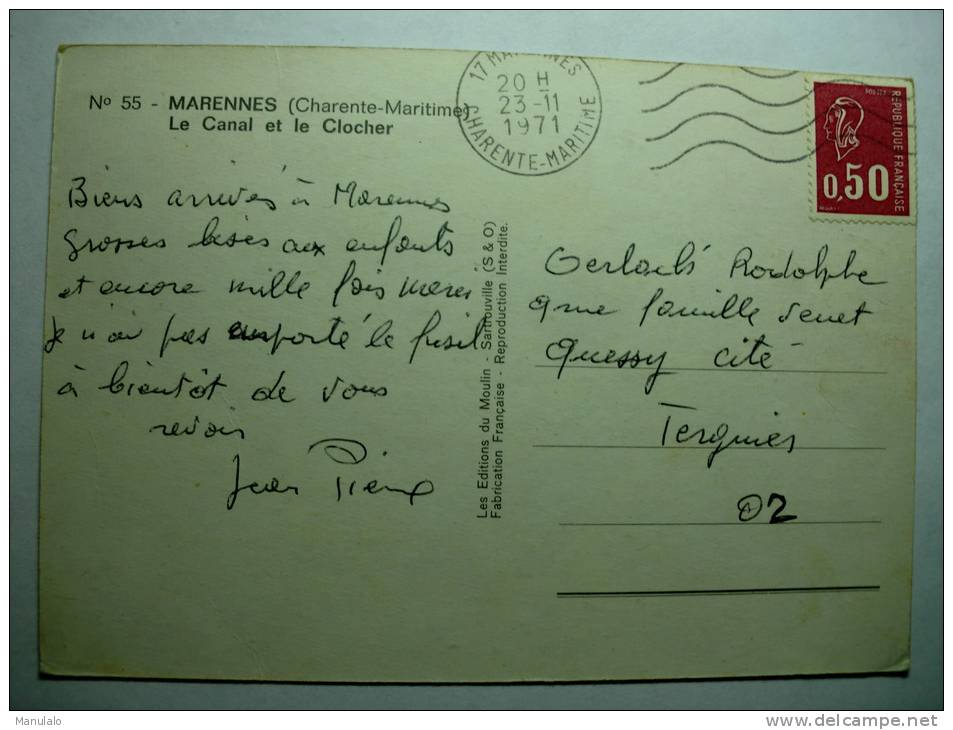 No 55 - MARENNES (Charente-Maritime)
Le Canal et le Clocher
17 MARENNES
20 H
23-11
1971
CHARENTE-MARITIME
POSTES
REPUBLIQUE FRANÇAISE
0,50
Biens arrivés à Marennes
grosses bises aux enfants
et encore mille fois merci
je n'ai pas emporté le fusil
à bientôt de vous
revoir
Jean Pierre
Les Editions du Moulin - Sartrouville (S & O)
Fabrication Française - Reproduction Interdite.
Rodolphe
famille
Quessy cité
Tergnier
02
Manulalo
www.delcampe.net